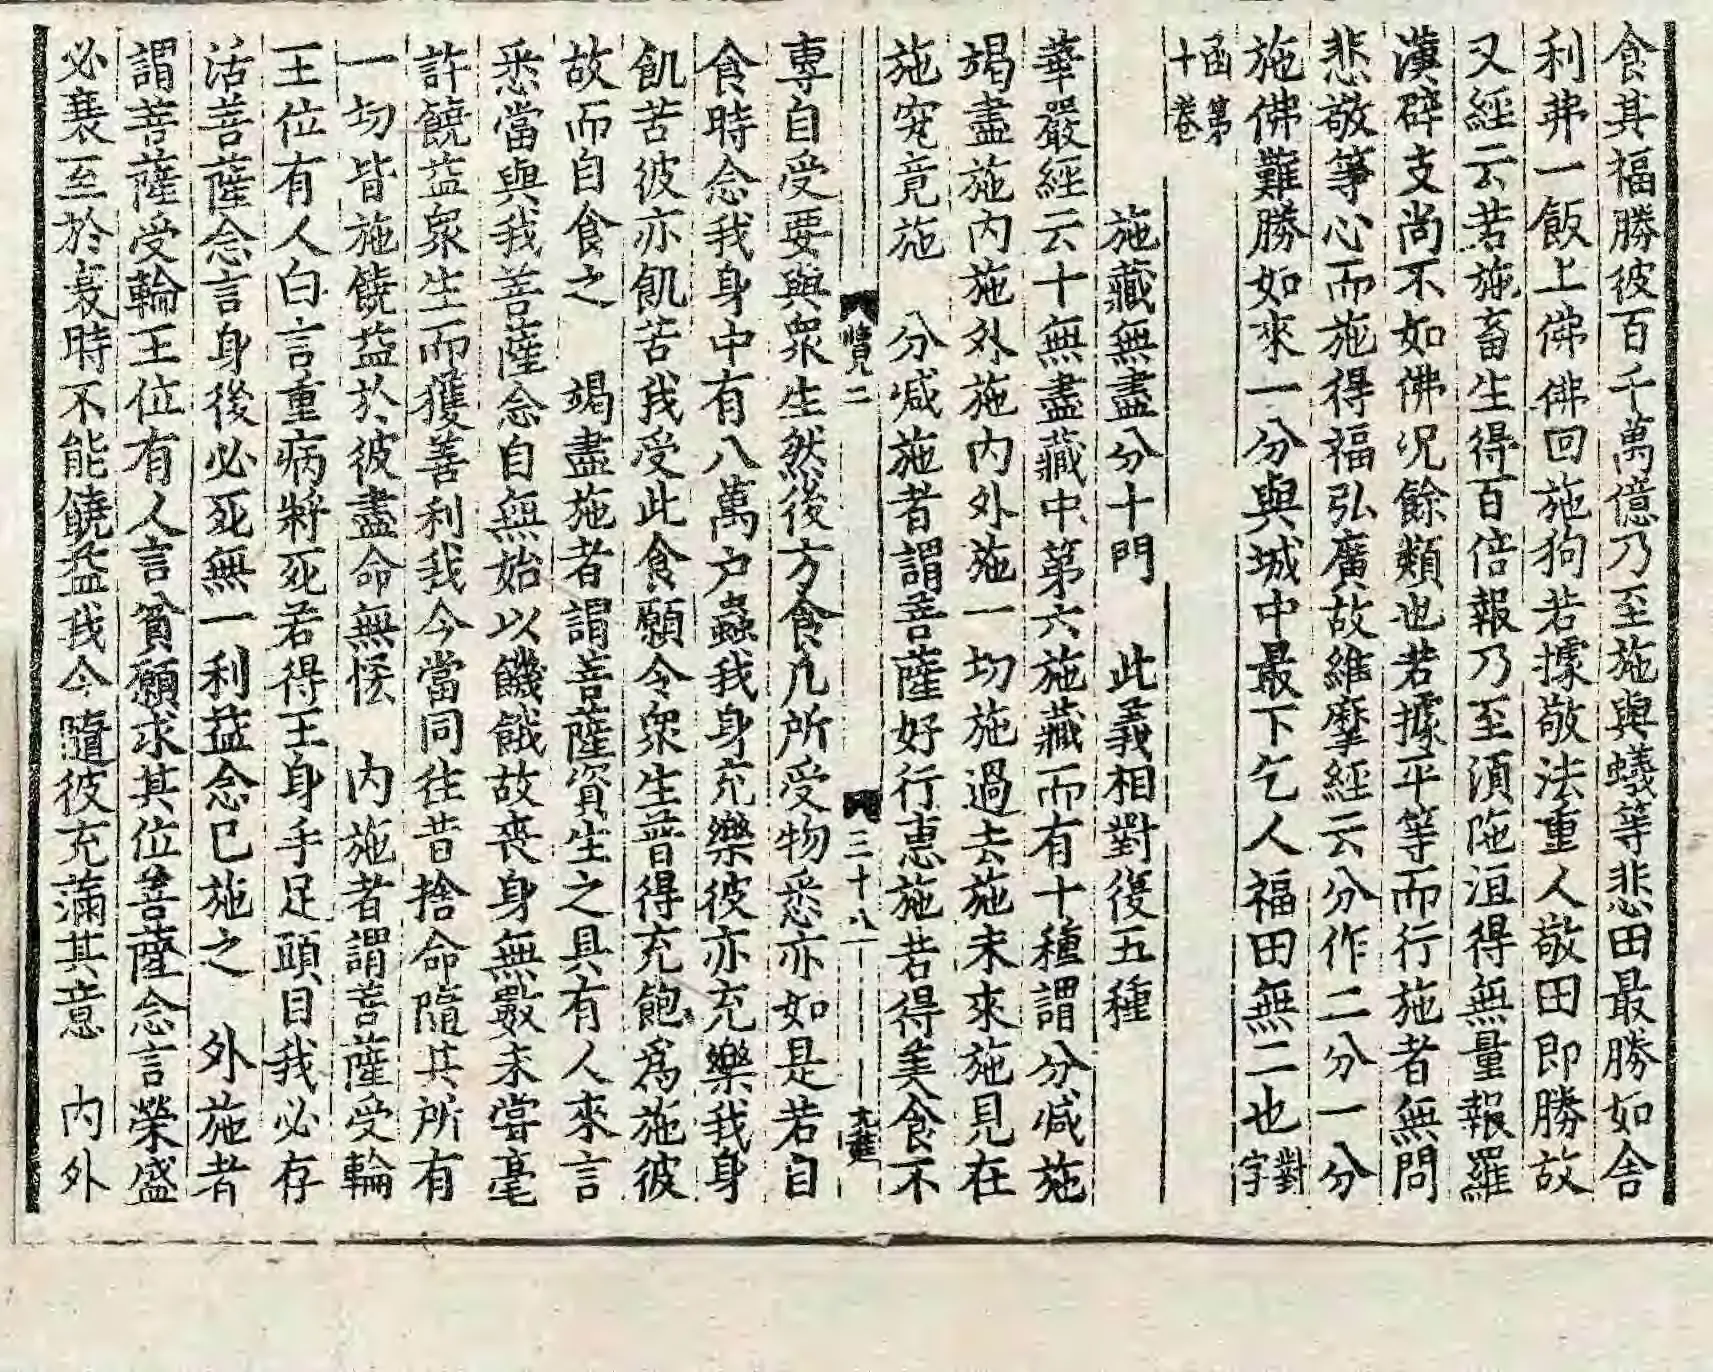 食其福勝彼百千萬億乃至施與蟻等悲田最勝如舍
利弗一飯上佛佛回施狗若據敬法重人敬田即勝故
又經云若施畜生得百倍報乃至須陁洹得無量報羅
漢辟支尚不如佛況餘類也若據平等而行施者無問
悲敬等心而施得福弘廣故維摩經云分作二分一分
施佛難勝如來一分與城中最下乞人福田無二也對字
函第十卷
施藏無盡分十門　此義相對復五種
華嚴經云十無盡藏中第六施藏而有十種謂分減施
竭盡施內施外施內外施一切施過去施未來施見在
施究竟施　分減施者謂菩薩好行惠施若得美食不
覽二　三十八
專自受要與衆生然後方食凡所受物悉亦如是若自
食時念我身中有八萬户蟲我身充樂彼亦充樂我身
飢苦彼亦飢苦我受此食願令衆生普得充飽爲施彼
故而自食之　竭盡施者謂菩薩資生之具有人來言
悉當與我菩薩念自無始以饑餓故喪身無數未嘗毫
許饒益衆生而獲善利我今當同往昔捨命隨其所有
一切皆施饒益於彼盡命無恡　內施者謂菩薩受輪
王位有人白言重病將死若得王身手足頭目我必存
活菩薩念言身後必死無一利益念已施之　外施者
謂菩薩受輪王位有人言貧願求其位菩薩念言榮盛
必衰至於衰時不能饒益我今隨彼充滿其意　內外